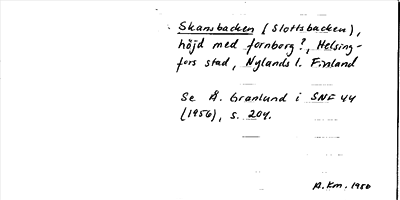 Skansbacken (Slottsbacken),
höjd med fornborg?, Helsing-
fors stad, Nylands l. Finland
Se Å. Granlund i SNF 44
(1956), s. 204.
A.Km. 1956